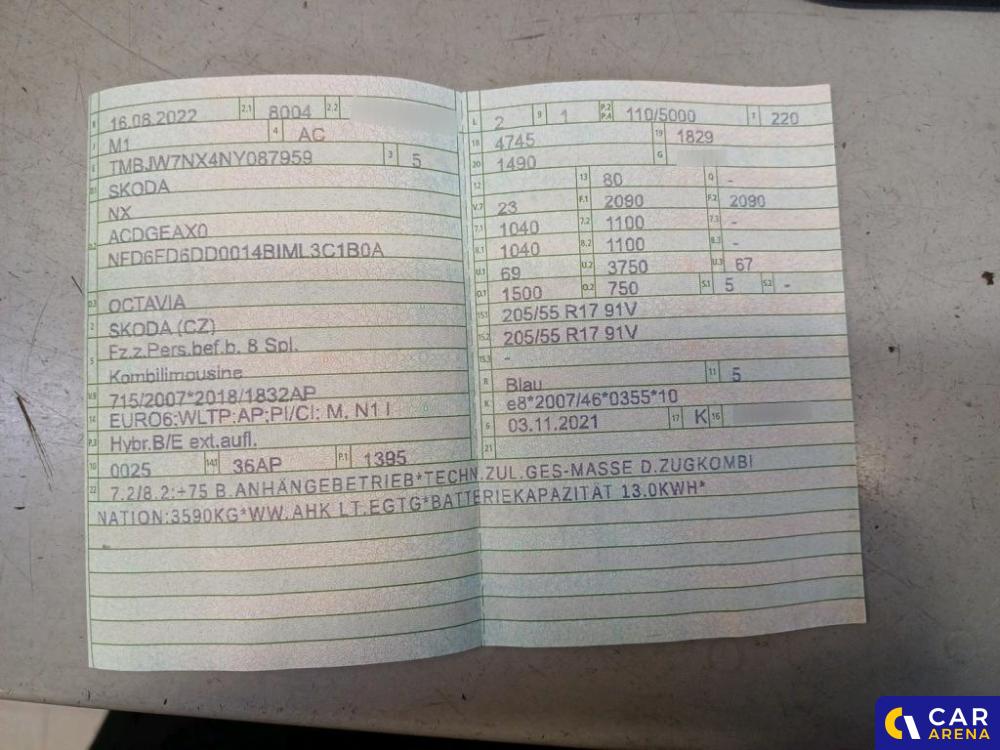 B 16.08.2022 2.1 8004 2.2
J M1 4 AC
E TMBJW7NX4NY087959 3 5
D.1 SKODA
NX
D.2 ACDGEAX0
NFD6FD6DD0014BIML3C1B0A
D.3 OCTAVIA
2 SKODA (CZ)
5 Fz.z.Pers.bef.b. 8 Spl.
Kombilimousine
V.9 715/2007*2018/1832AP
14 EURO6;WLTP;AP;PI/CI; M, N1 I
P.3 Hybr.B/E ext.aufl.
10 0025 14.1 36AP P.1 1395
22 7.2/8.2:+75 B.ANHÄNGEBETRIEB*TECHN.ZUL.GES-MASSE D.ZUGKOMBI
NATION:3590KG*WW.AHK LT.EGTG*BATTERIEKAPAZITÄT 13.0KWH*
-
L 2 9 1 P.2 P.4 110/5000 T 220
18 4745 19 1829
20 1490 G
12 13 80 Q -
V.7 23 F.1 2090 F.2 2090
7.1 1040 7.2 1100 7.3 -
8.1 1040 8.2 1100 8.3 -
U.1 69 U.2 3750 U.3 67
O.1 1500 O.2 750 S.1 5 S.2 -
15.1 205/55 R17 91V
15.2 205/55 R17 91V
15.3 -
R Blau 11 5
K e8*2007/46*0355*10
6 03.11.2021 17 K 16
21
CAR
ARENA